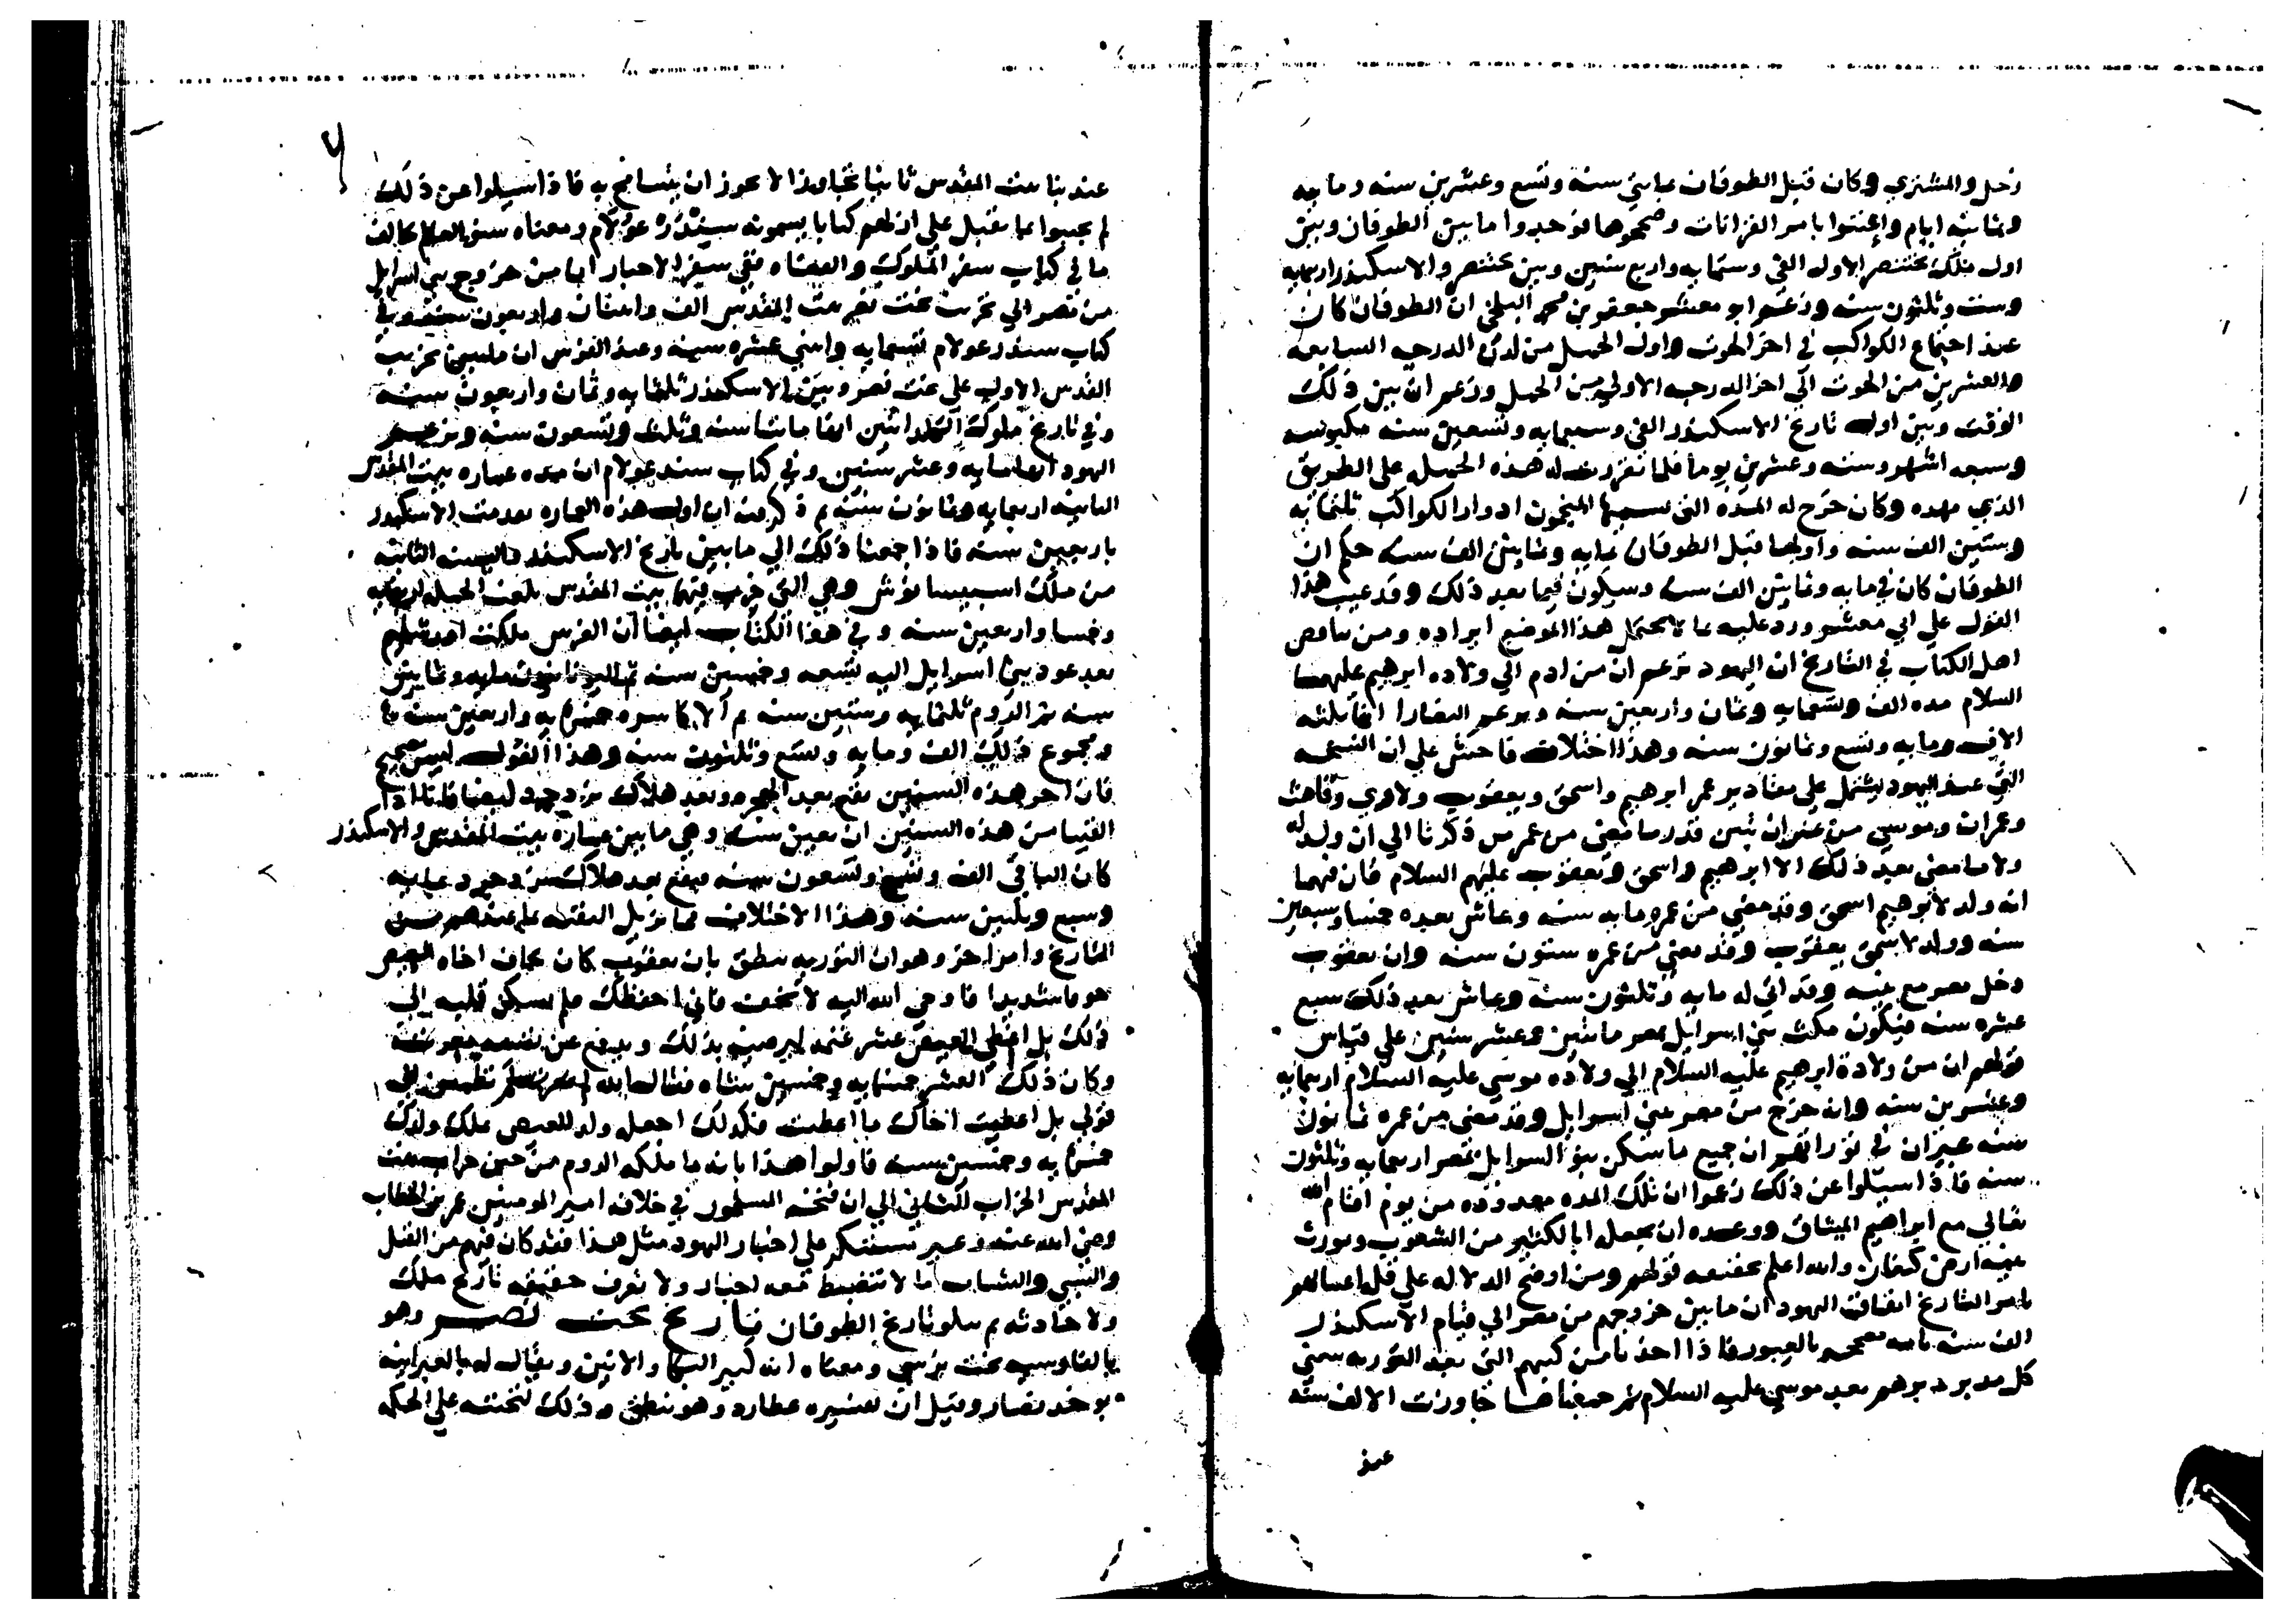 زحل والمشتري وكان قبل الطوفان بمايتي سنة وتسع وعشرين سنه ومايه
وثمانيه ايام واعتنوا بامر القرانات وصححوها فوجدوا ما بين الطوفان وبين
اول ملك بختنصر الاول الفي وستمايه واربع سنين وبين بختنصر والاسكندر اربعمايه
وست وثلثون سنه وزعم ابو معشر جعفر بن محمد البلخي ان الطوفان كان
عند اجتماع الكواكب في اخر الحوت واول الحمل من لدن الدرجه السابعه
والعشرين من الحوت الي اخر الدرجه الاولي من الحمل وزعم ان بين ذلك
الوقت وبين اول تاريخ الاسكندر الفي وسبعمايه وتسعين سنه مكبوسه
وسبعه اشهر وسته وعشرين يوما فلما تقررت له هذه الحمل علي الطريق
الذي مهده وكان خرج له المده التي يسميها المنجمون ادوار الكواكب ثلثمائه
وستين الف سنه واولها قبل الطوفان بمايه وثمانين الف سنه حكم ان
الطوفان كان في مايه وثمانين الف سنه وسيكون فيما بعد ذلك وقد عيب هذا
القول علي ابي معشر ورد عليه بما لا يحتمل هذا الموضع ايراده ومن
اهل الكتاب في التاريخ ان اليهود تزعم ان من ادم الي ولاده ابرهيم عليهما
السلام مده الف وتسعمايه وثمان واربعين سنه ويزعم النصارا انها ثلثه
الاف ومايه وتسع وثمانون سنه وهذا اختلاف فاحش علي ان النسخه
التي عند اليهود يشتمل علي مقادير عمر ابرهيم واسحق ويعقوب ولاوي وقاهث
وعمران وموسي من غيران تبين قدر ما مضي من عمر من ذكرنا الي ان ولد له
ولا ما مضي بعد ذلك الا ابرهيم واسحق ويعقوب عليهم السلام فان فيها
انه ولد لابرهيم اسحق وقد مضي من عمره مايه سنه وعاش بعده خمسا وسبعين
سنه وولد لاسحق يعقوب وقد مضي من عمره ستون سنه وان يعقوب
دخل مصر مع بنيه وقد اتي له مايه وثلثون سنه وعاش بعد ذلك سبع
عشره سنه فيكون مكث بني اسرايل بمصر مائتين وعشر سنين علي قياس
قولهم ان من ولادة ابرهيم عليه السلام الي ولاده موسي عليه السلام اربعمايه
وعشرين سنه وانه خرج من مصر ببني اسرايل وقد مضي من عمره ثمانون
سنه غير ان في توراتهم ان جميع ما سكن بنو اسرايل بمصر اربعمايه وثلثون
سنه فاذا سيلوا عن ذلك زعموا ان تلك المده معدوده من يوم اقام الله
تعالي مع ابراهيم الميثاق ووعده ان يجعله ابا لكثير من الشعوب ويورث
بنيه ارض كنعان والله اعلم بحقيقه قولهم ومن اوضح الدلاله علي قله اعتنايهم
بامر التاريخ اتفاق اليهود ان ما بين خروجهم من مصر الي قيام الاسكندر
الف سنه تامه مصححه بالعبور فاذا اخذنا من كتبهم التي بعد التوريه سني
كل مدبر دبرهم بعد موسي عليه السلام ثم جمعناها تجاوزت الالف سنه
عند
عند بنا بيت المقدس ثانيا تجاوزا لا يجوز ان يتسامح به فاذا سيلوا عن ذلك
لم يجيبوا بما يقبل علي ان لهم كتابا يسمونه سيذر عولام ومعناه سنو العالم يخالف
ما في كتاب سفر الملوك والقضاه ففي سفر الاحبار ان من خروج بني اسرايل
من مصر الي تخريب بخت نصر بيت المقدس الف واثنان واربعون سنه وفي
كتاب سيذر عولام تسعمايه واثني عشره سنه وعند الفرس ان ما بين تخريب
القدس الاول علي بخت نصر وبين الاسكندر ثلثمايه وثمان واربعون سنه
وفي تاريخ ملوك الكلدانيين انها مائتا سنه وثلث وتسعون سنه ويزعم
اليهود انها مايه وعشر سنين وفي كتاب سيذر عولام ان مده عماره بيت المقدس
الثانيه اربعمايه وثمانون سنه ثم ذكرت ان اول هذه العماره بعد الاسكندر
باربعين سنه فاذا جمعنا ذلك الي ما بين تاريخ الاسكندر والسنه الثانيه
من ملك اسبيسانوش وهي التي خرب فيها بيت المقدس بلغت الجمله اربعمايه
وخمسا واربعين سنه وفي هذا الكتاب ايضا ان الفرس ملكت
بعد عود بني اسرايل اليه تسعه وخمسين سنه ثم اليونانيون مايه وثمانين
سنه ثم الروم ثلثمايه وستين سنه ثم الاكاسره خمسمايه واربعين سنه
ومجموع ذلك الف ومايه وتسع وثلثون سنه وهذا القول ليس صحيح
فان اخر هذه السنين يقع بعد الهجره وبعد هلاك يزدجرد ايضا فاننا اذا
القينا من هذه السنين اربعين سنه وهي ما بين عماره بيت المقدس والاسكندر
كان الباقي الف وتسع وتسعون سنه فيقع بعد هلاك يزدجرد بمايه
وسبع وثلثين سنه وهذا الاختلاف مما يزيل الثقه بما عندهم من
التاريخ وامر اخر وهو ان التوريه ينطق بان يعقوب كان يخاف اخاه العيص
خوفا شديدا فاوحي الله اليه لا تخف فاني احفظك فلم يسكن قلبه الي
ذلك بل اعطي العيص عشر غنمه ليرضيه بذلك ويدفع عن نفسه
وكان ذلك العشر خمسمايه وخمسين شاه فقال الله تطمين الي
قولي بل اعطيت اخاك ما اعطيت فكذلك اجعل ولد العيص يملك ولدك
خمسمايه وخمسين سنه فاولوا هذا بانه ما ملكه الروم من حين خراب بيت
المقدس الخراب الثاني الي ان فتحه المسلمون في خلافه امير المومنين عمر بن الخطاب
رضي الله عنه وغير مستنكر علي اخبار اليهود مثل هذا فقد كان فيهم من القتل
والسبي والشتات ما لا تنضبط معه اخبار ولا تعرف حقيقه تاريخ ملك
ولا حادثه ثم يتلو تاريخ الطوفان تاريخ بخت نصر وهو
بالفارسيه بخت نرسي ومعناه انه كثير البكا والانين ويقال له بالعبرانيه
بوخد نصار وقيل ان تفسيره عطارد وهو ينطق وذلك لتحننه علي الحكمه